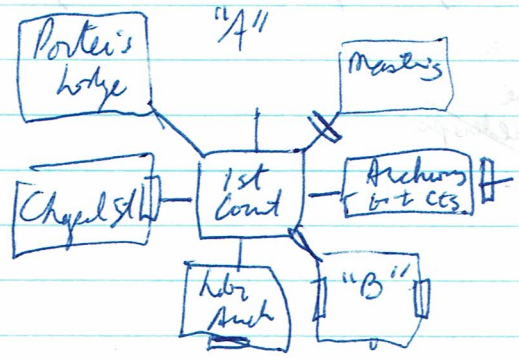 "A"
Porter's
Lodge
Master's
1st
Court
Archway
Chapel St
Arch
"B"